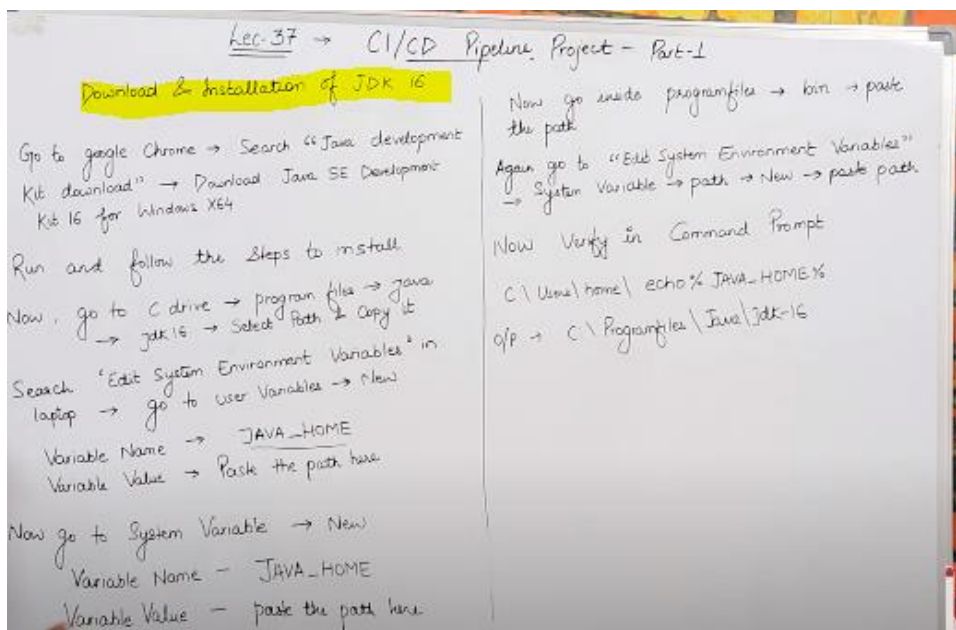 Lec-37 → CI/CD Pipeline Project - Part-1
Download & Installation of JDK 16
Go to google Chrome → Search "Java development
Kit download" → Download Java SE Development
Kit 16 for Windows X64
Run and follow the Steps to install
Now, go to C drive → program files → java
→ jdk 16 → Select Path & Copy it
Search "Edit System Environment Variables" in
laptop → go to user Variables → New
Variable Name → JAVA_HOME
Variable Value → Paste the path here
Now go to System Variable → New
Variable Name - JAVA_HOME
Variable Value - paste the path here
Now go inside programfiles → bin → paste
the path
Again go to "Edit System Environment Variables"
→ System Variable → path → New → paste path
Now Verify in Command Prompt
C\Users\home\ echo% JAVA_HOME%
o/p → C\Programfiles\Java\Jdk-16